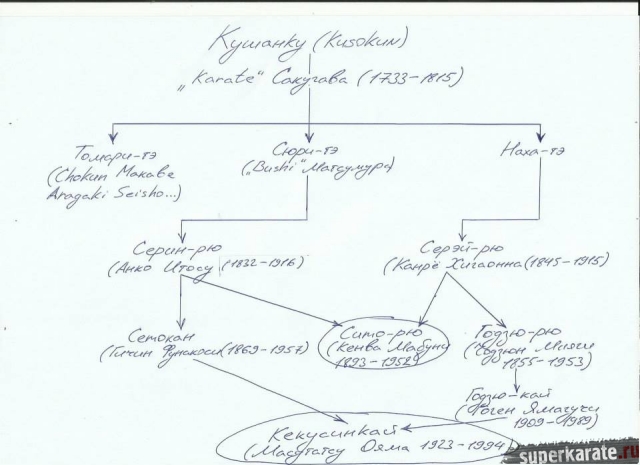 Кушанку (Kusokun)
„Karate“ Сакугава (1733-1815)
Томари-тэ
(Chokun Макаве
Aragaki Seisho...)
Сюри-тэ
(„Bushi“ Матсумура)
Наха-тэ
Серин-рю
(Анко Итосу (1832-1916)
Серэй-рю
(Канрё Хигаонна (1845-1915)
Сетокан
(Гичин Фунакоси (1869-1957)
Сито-рю
(Кенва Мабуни
1893-1952)
Годзю-рю
(Чодзюн Мияги
1855-1953)
Годзю-кай
(Гоген Ямагучи
1909-1989)
Кекусинкай
(Масутатсу Ояма 1923-1994)
superkarate.ru